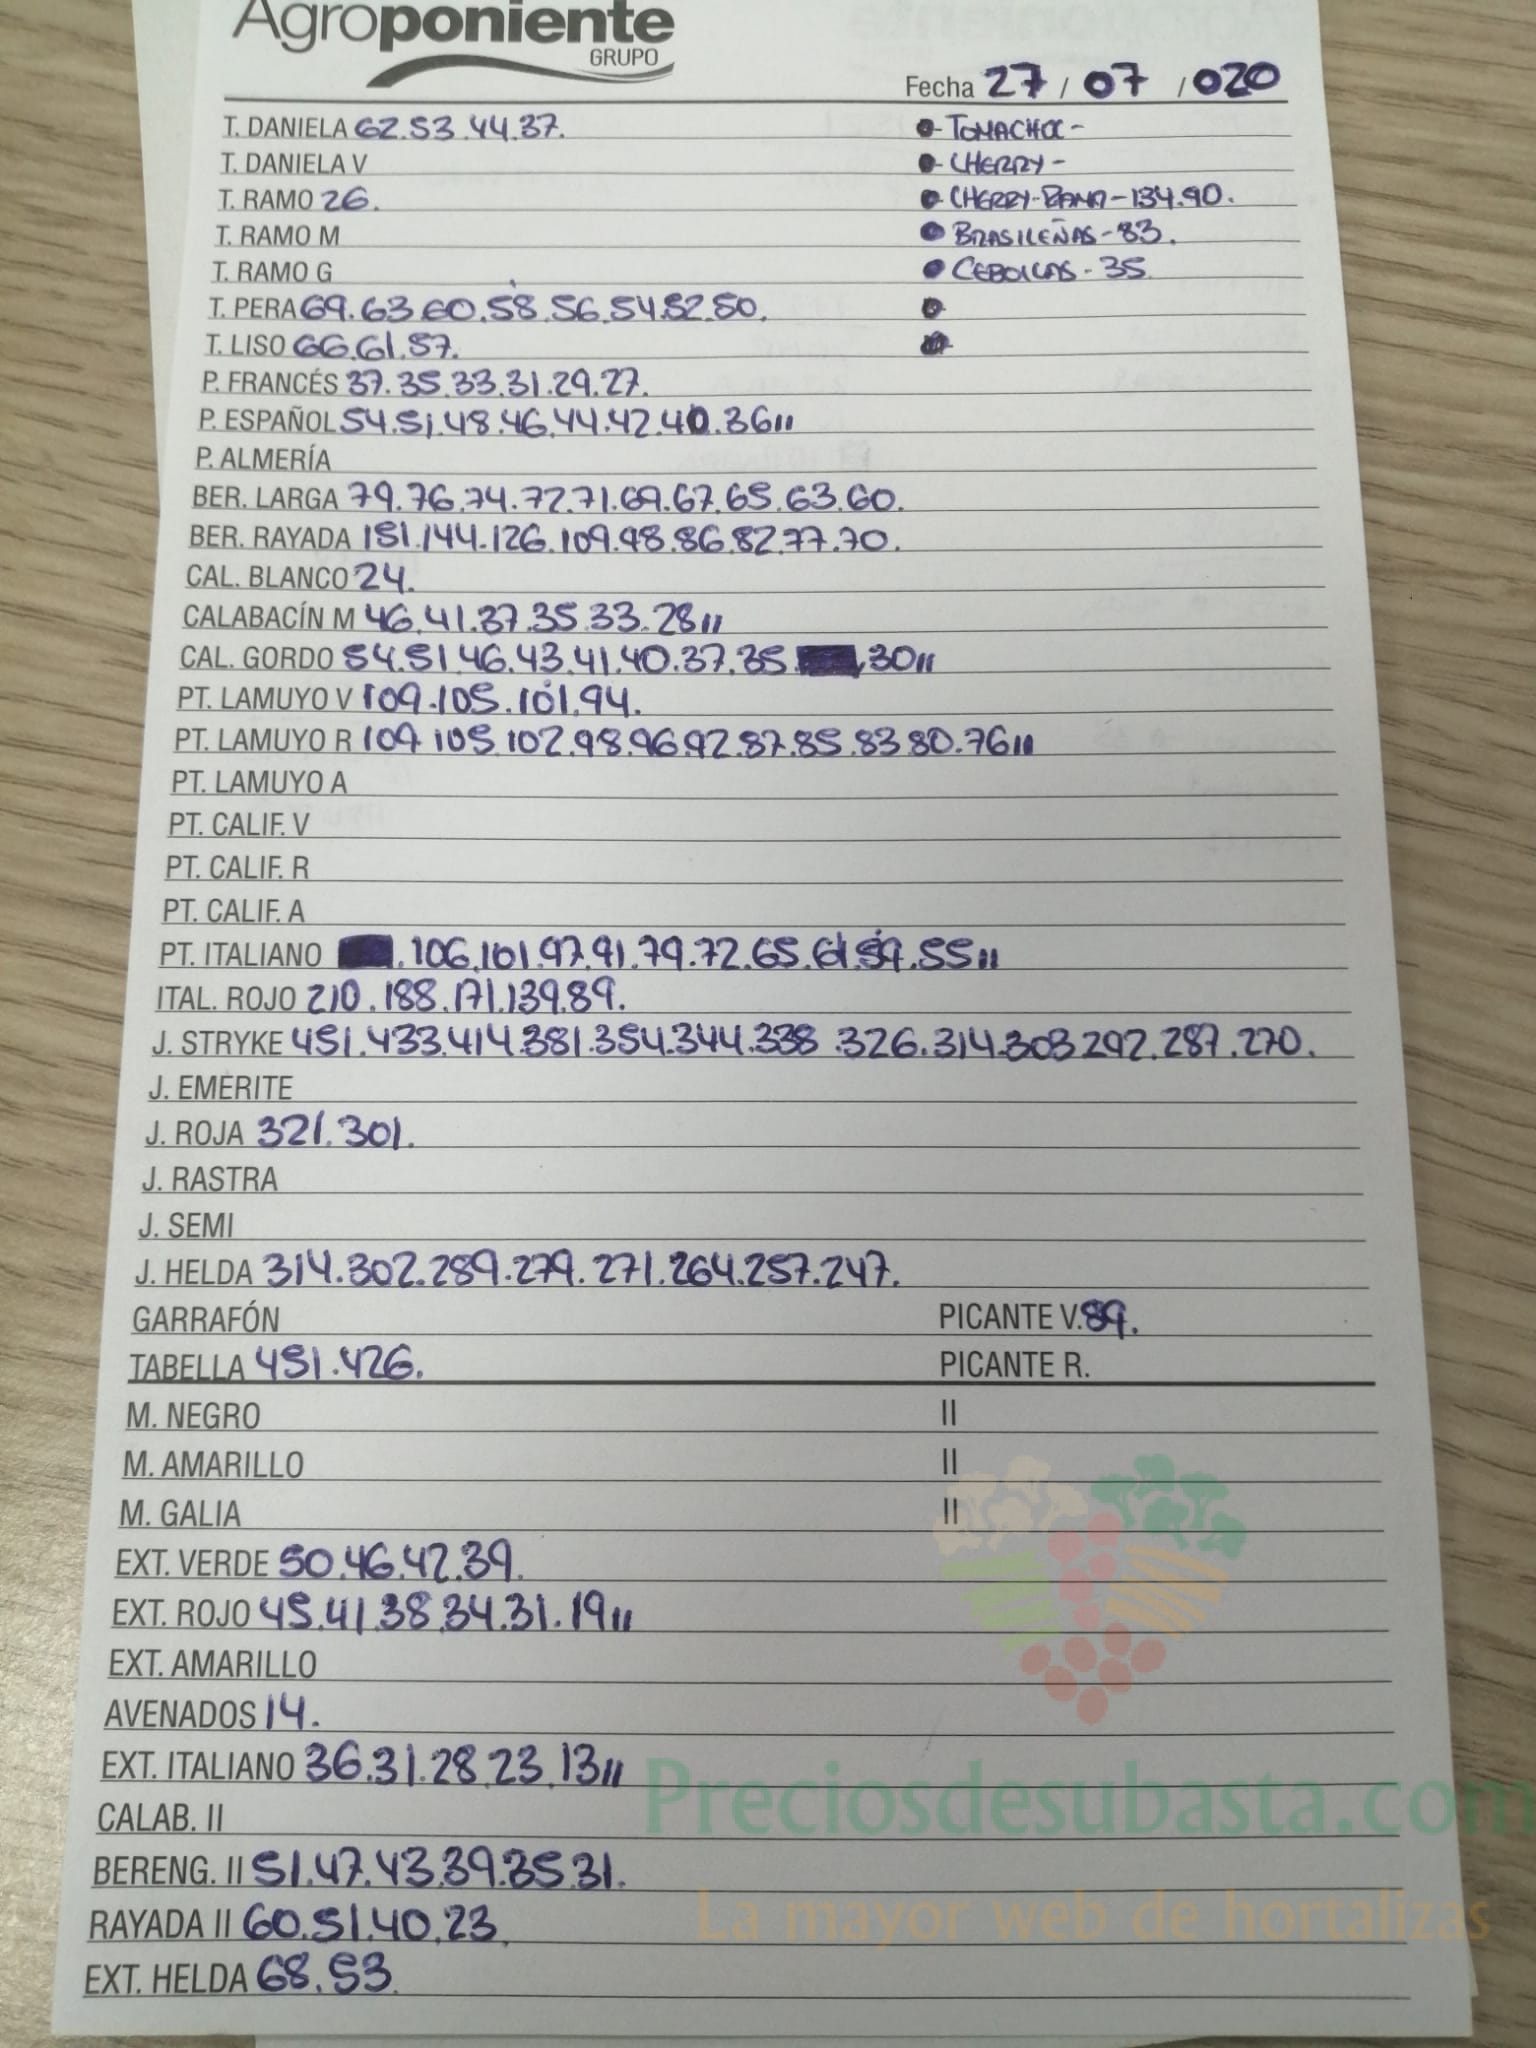 Agroponiente
GRUPO
Fecha 27 / 07 / 020
T. DANIELA 62.53.44.37. - TOMACHOC -
T. DANIELA V - CHERRY -
T. RAMO 26. - CHERRY-RAMA - 134.90.
T. RAMO M BRASILEÑAS - 83.
T. RAMO G CEBOLLAS - 35
T. PERA 69.63.60.58.56.54.52.50.
T. LISO 66.61.57.
P. FRANCÉS 37.35.33.31.29.27.
P. ESPAÑOL 54.51.48.46.44.42.40.3611
P. ALMERÍA
BER. LARGA 79.76.74.72.71.69.67.65.63.60.
BER. RAYADA 151.144.126.109.98.86.82.77.70.
CAL. BLANCO 24.
CALABACÍN M 46.41.37.35.33.2811
CAL. GORDO 54.51.46.43.41.40.37.35. .3011
PT. LAMUYO V 109.105.101.94.
PT. LAMUYO R 109.105.102.98.96.92.87.85.83.80.7611
PT. LAMUYO A
PT. CALIF. V
PT. CALIF. R
PT. CALIF. A
PT. ITALIANO .106.101.97.91.79.72.65.61.59.5511
ITAL. ROJO 210.188.171.139.89.
J. STRYKE 451.433.414.381.354.344.338.326.314.303.292.287.270.
J. EMERITE
J. ROJA 321.301.
J. RASTRA
J. SEMI
J. HELDA 314.302.289.279.271.264.257.247.
GARRAFÓN PICANTE V. 89.
TABELLA 451.426. PICANTE R.
M. NEGRO II
M. AMARILLO II
M. GALIA II
EXT. VERDE 50.46.42.39.
EXT. ROJO 45.41.38.34.31.1911
EXT. AMARILLO
AVENADOS 14.
EXT. ITALIANO 36.31.28.23.1311
Preciosdesubasta.com
CALAB. II
BERENG. II 51.47.43.39.35.31.
La mayor web de hortalizas
RAYADA II 60.51.40.23.
EXT. HELDA 68.53.